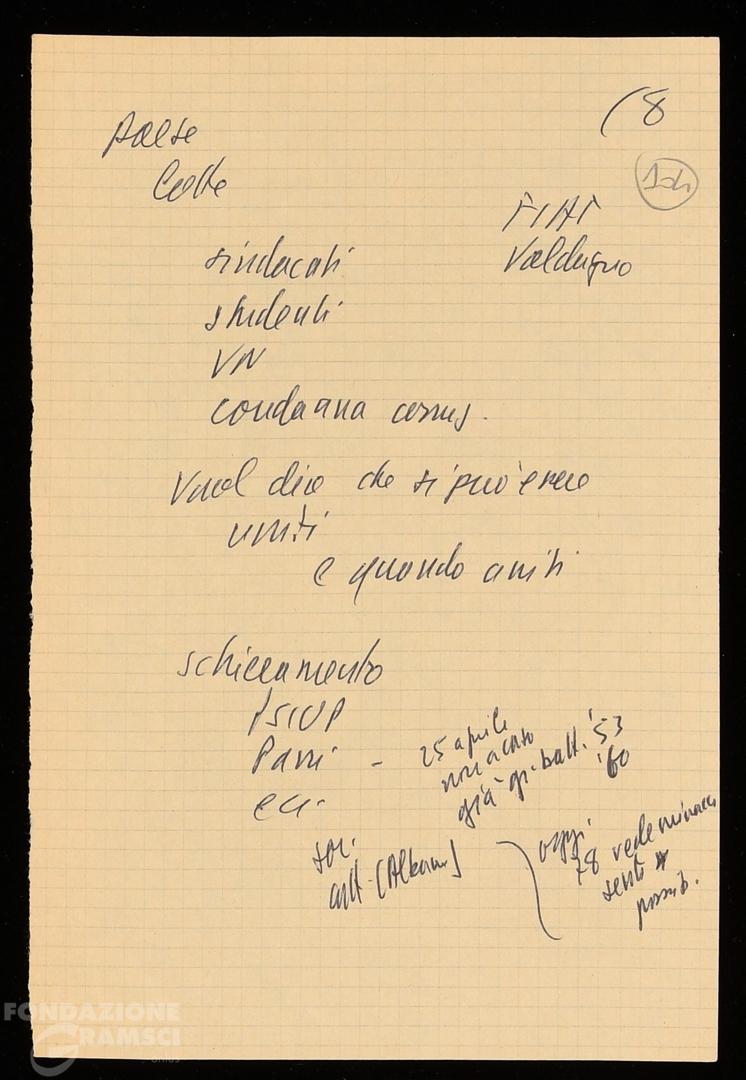 (8
Paese
Lotte
FIAT
Valdagno
sindacati
studenti
VN
condanna comus.
Vuol dire che si può essere
uniti
e quando uniti
schieramento
PSIUP
Parri - 25 aprile
non a caso
già gr. batt. '53
'60
ecc.
soc.
catt. [Albani]
oggi
vede minacce
sente
possib.
FONDAZIONE
GRAMSCI